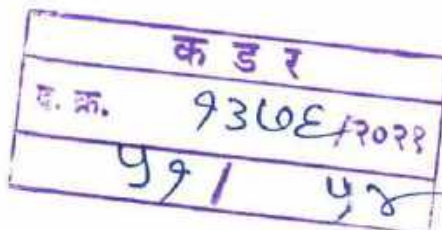 क ड र
द. क्र. १३७६/२०२१
५१ / ५४